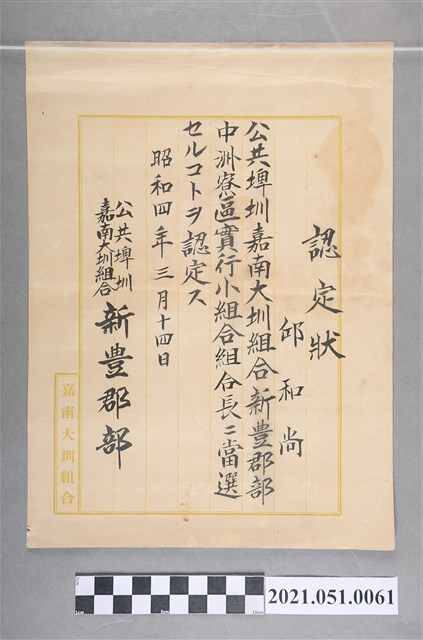 認定狀
邱和尚
公共埤圳嘉南大圳組合新豊郡部
中洲寮區實行小組合組合長ニ當選
セルコトヲ認定ス
昭和四年三月十四日
公共埤圳
嘉南大圳組合
新豊郡部
嘉南大圳組合
2021.051.0061